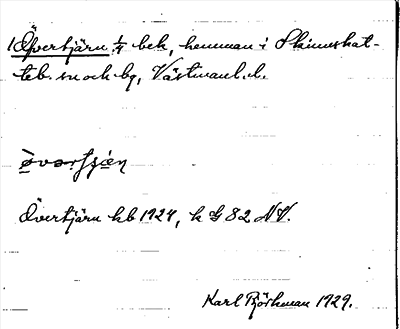 1 Övertjärn 1/4 bek, hemman i Skinnskat-
teb. sn och bg, Västmanl. l.
Övertjärn kb 1924, k G 82 NV.
Karl Björkman 1929.